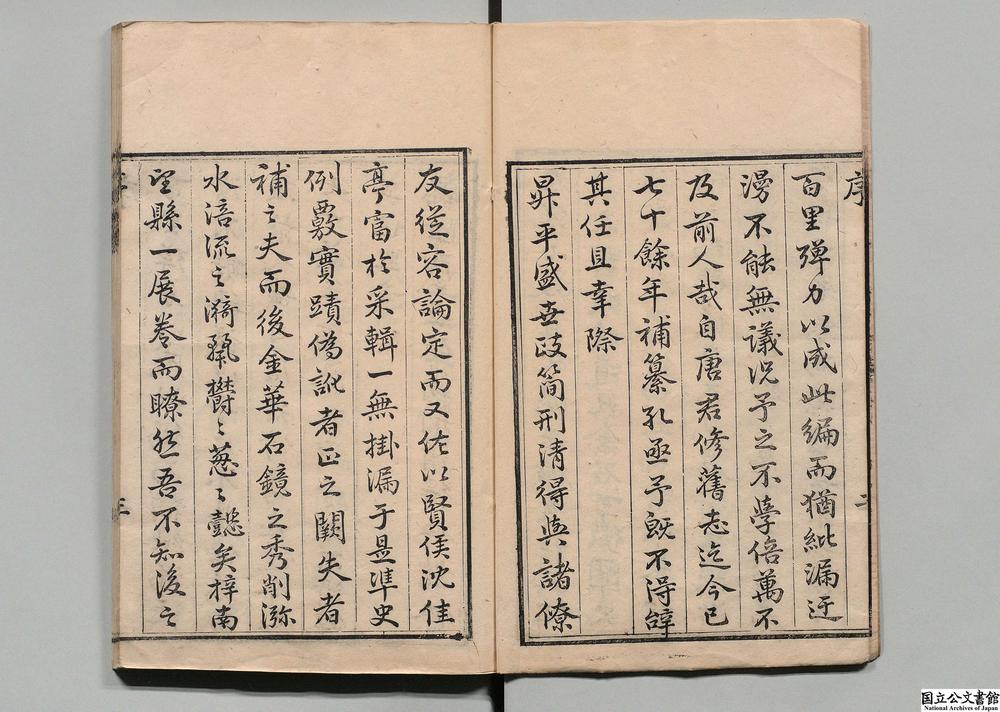 序
二
百里殫力以成此編而猶紕漏迂
漫不能無議况予之不學倍萬不
及前人哉自唐君修舊志迄今已
七十餘年補纂孔亟予既不得辭
其任且幸際
昇平盛世政簡刑清得與諸僚
友從容論定而又佐以賢侯沈佳
亭富於采輯一無掛漏于是準史
例覈實蹟偽訛者正之闕失者
補之夫而後金華石鏡之秀削瀰
水涪流之漪
鬱〻蔥〻懿矣梓南
望縣一展卷而瞭然吾不知後之
三
国立公文書館
National Archives of Japan